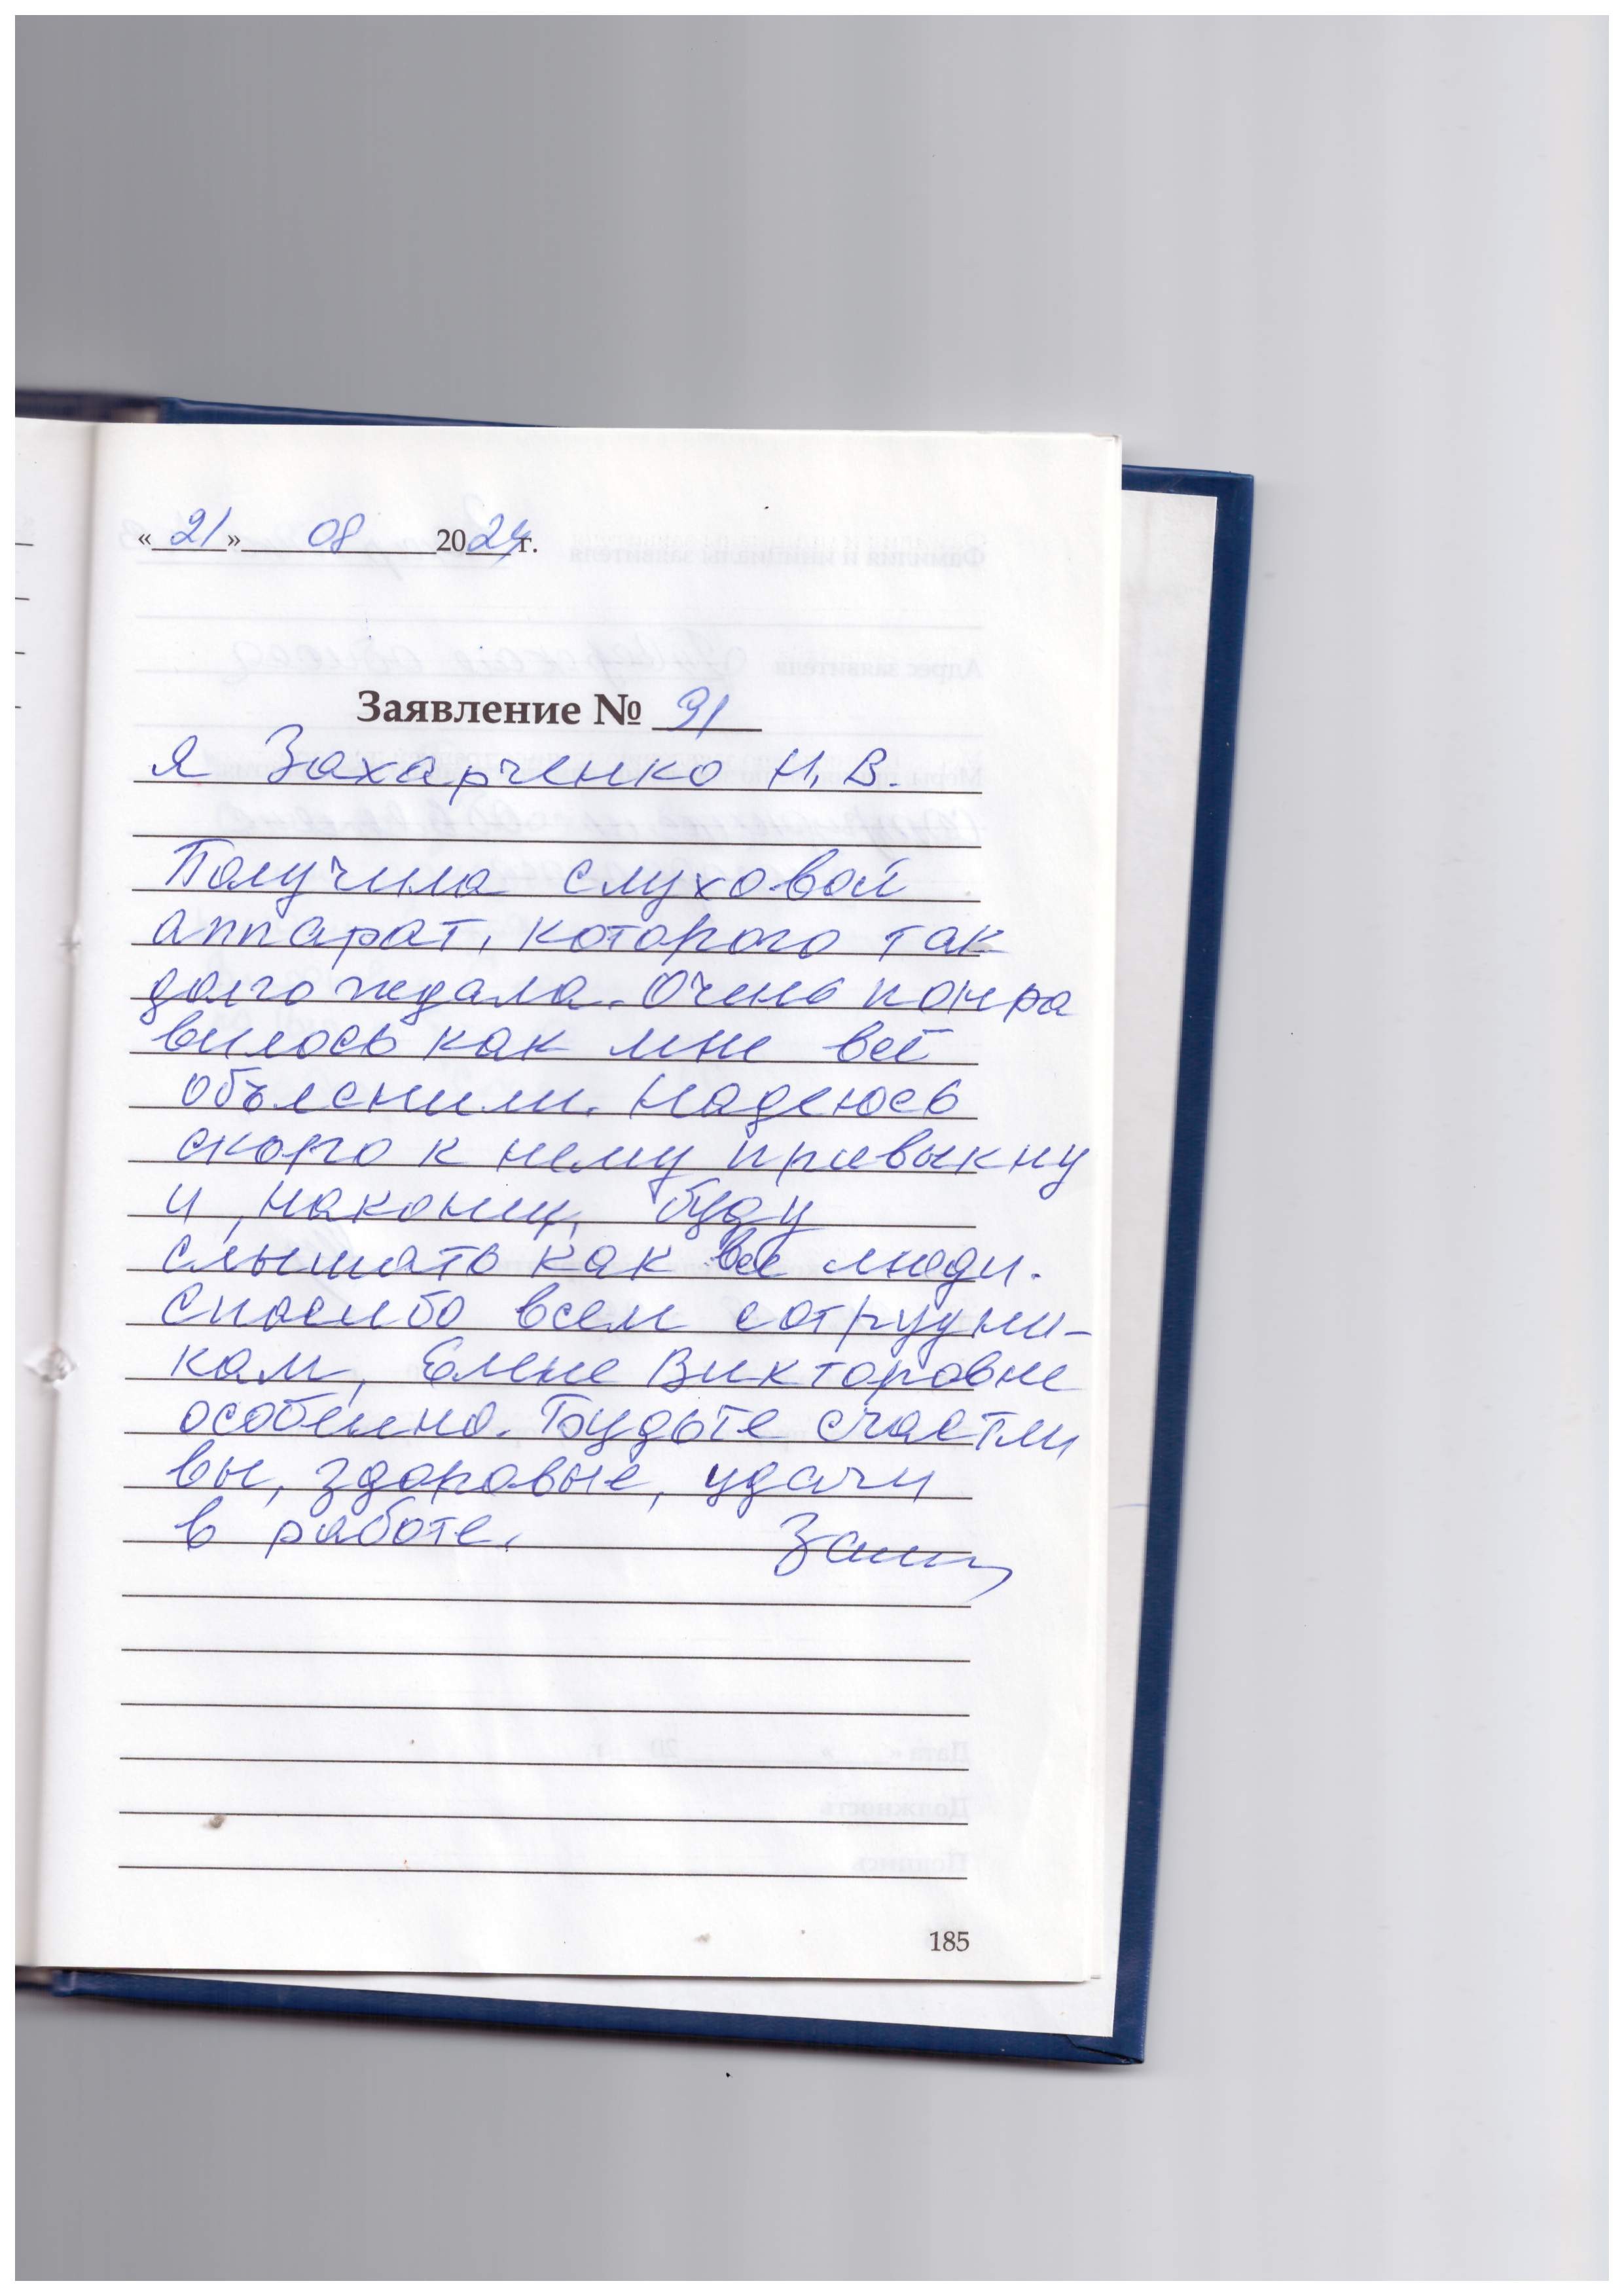 «21» 08 2024 г.
Заявление № 91
Я Захарченко Н. В.
Получила слуховой
аппарат, которого так
долго ждала. Очень понра
вилось как мне всё
объяснили. Надеюсь
скоро к нему привыкну
и, наконец, буду
слышать как все люди.
Спасибо всем сотрудни-
кам, Елене Викторовне
особенно. Будьте счастли
вы, здоровые, удачи
в работе.
185